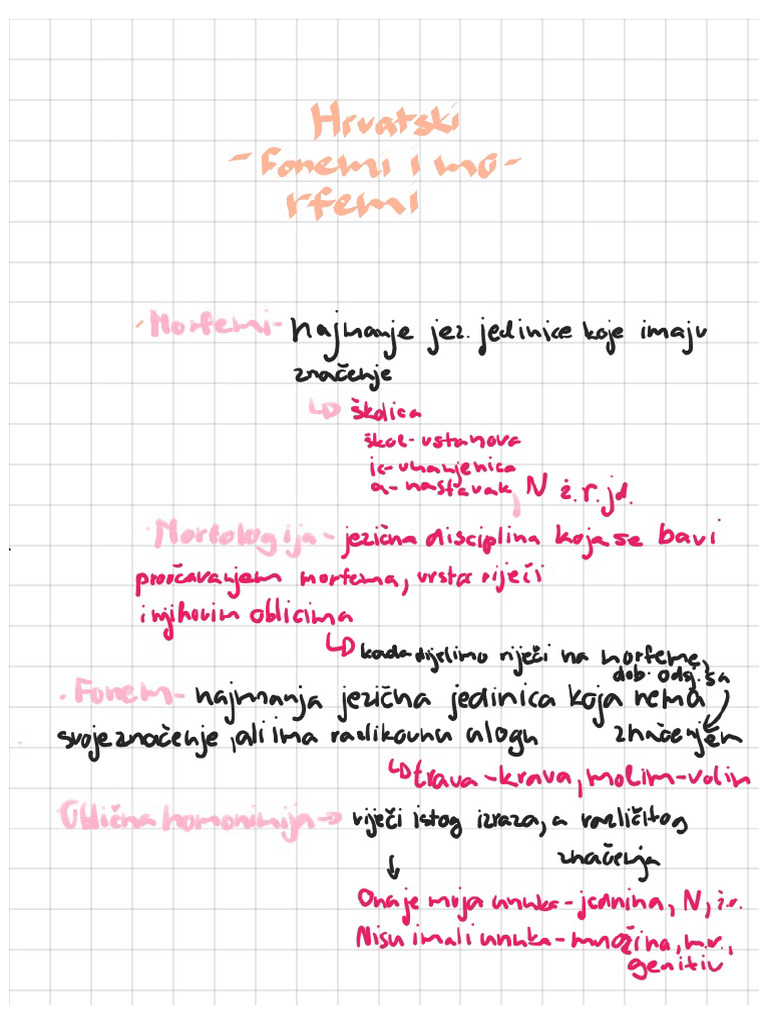 Hrvatski
- Fonemi i mo-
rfemi
Morfemi - najmanje jez. jedinice koje imaju
značenje
↳ školica
škol - ustanova
ic - umanjenica
a - nastavak, N ž.r. jd.
· Morfologija - jezična disciplina koja se bavi
proučavanjem morfema, vrsta riječi
i njihovim oblicima
↳ kada dijelimo riječi na morfeme,
dob. odsj. sa
· Fonem - najmanja jezična jedinica koja nema
svoje značenje, ali ima razlikovnu ulogu značenjem
↳ trava - krava, molim - volim
Oblična homonimija → riječi istog izraza, a različitog
značenja
↓
Ona je moja unuka - jednina, N, ž.r.
Nisu imali unuka - množina, m.r.,
genitiv